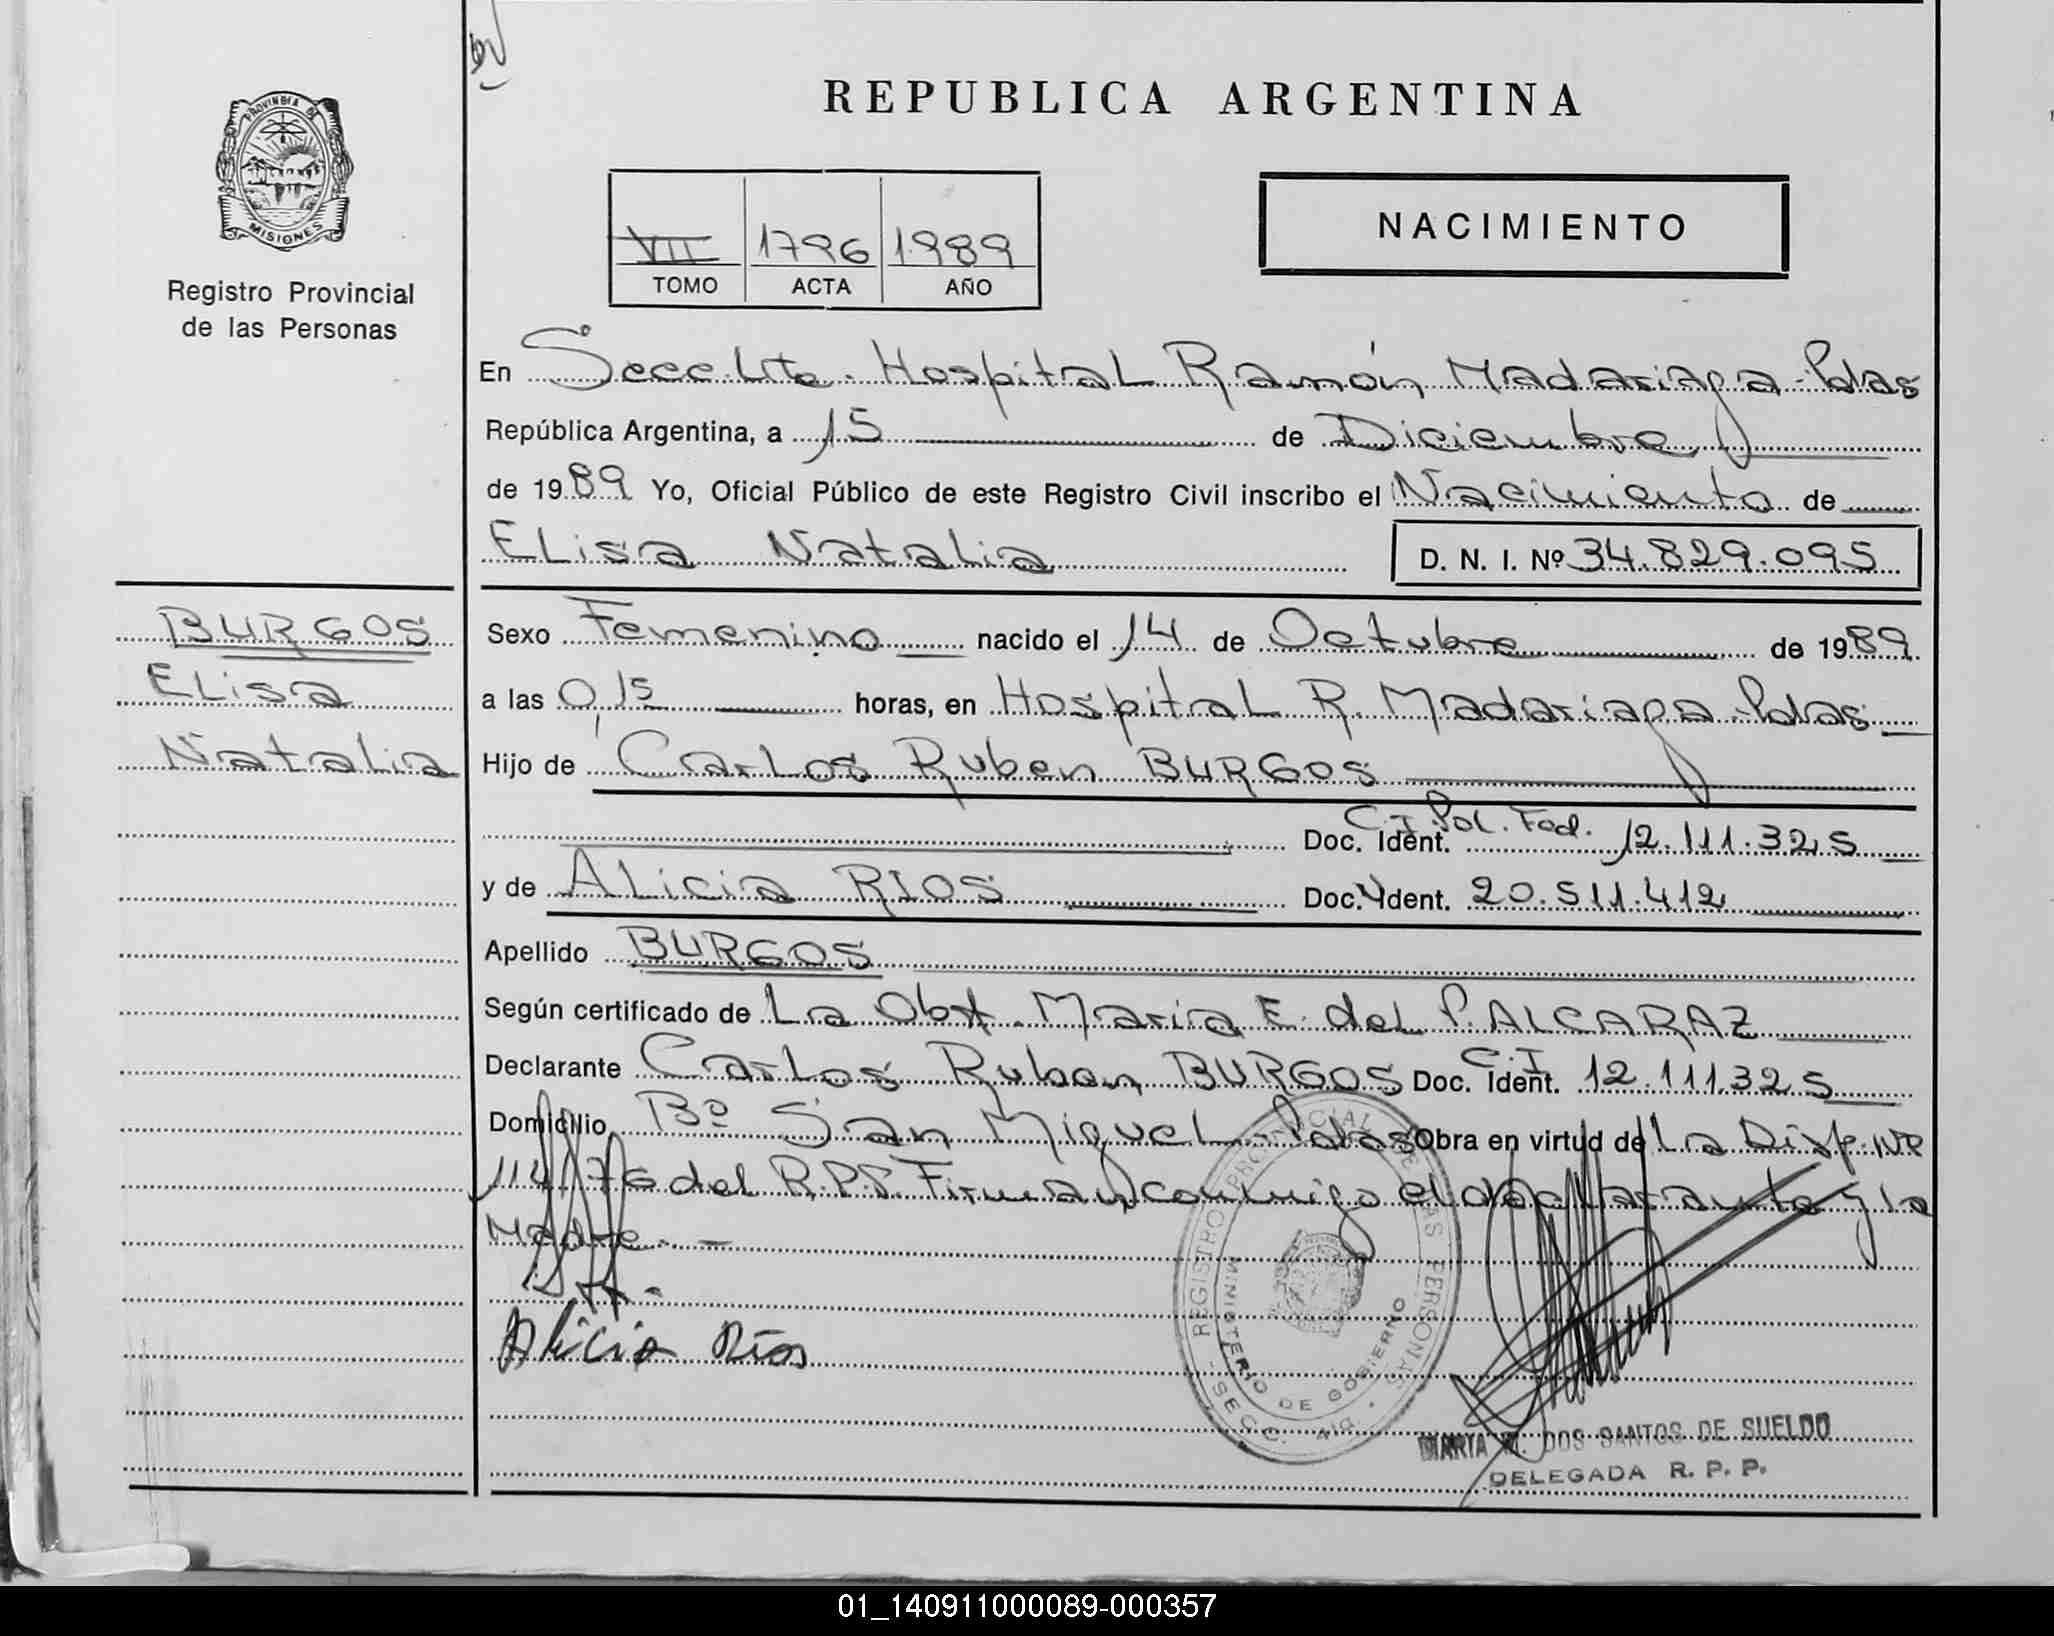 REPUBLICA ARGENTINA
PROVINCIA DE
MISIONES
Registro Provincial
de las Personas
VII 1796 1989
TOMO ACTA AÑO
NACIMIENTO
En Secc. Hospital Ramón Madariaga - Pdas
República Argentina, a 15 de Diciembre
de 1989 Yo, Oficial Público de este Registro Civil inscribo el Nacimiento de
Elisa Natalia D. N. I. Nº 34.829.095
BURGOS
Elisa
Natalia
Sexo Femenino nacido el 14 de Octubre de 1989
a las 0,15 horas, en Hospital R. Madariaga - Pdas
Hijo de Carlos Ruben BURGOS
Doc. Ident. C.I. Pol. Fed. 12.111.325
y de Alicia RIOS Doc. Ident. 20.511.412
Apellido BURGOS
Según certificado de La Obst. Maria E. del P. ALCARAZ
Declarante Carlos Ruben BURGOS Doc. Ident. C.I. 12.111.325
Domicilio Bº San Miguel - Pdas Obra en virtud de La Disp. Nº
114/76 del R.P.P. Firman conmigo el declarante y la
Madre. -
Alicia Ríos
REGISTRO PROVINCIAL DE LAS PERSONAS
MINISTERIO DE GOBIERNO
SECC.
MARIA DOS SANTOS DE SUELDO
DELEGADA R. P. P.
01_140911000089-000357